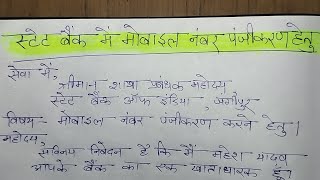 स्टेट बैंक में मोबाइल नंबर पंजीकरण हेतु
सेवा में,
श्रीमान शाखा प्रबंधक महोदय
स्टेट बैंक ऑफ इंडिया,
विषय - मोबाइल नंबर पंजीकरण करने हेतु।
महोदय,
सविनय निवेदन है कि मैं महेश यादव
आपके बैंक का एक खाताधारक हूं।